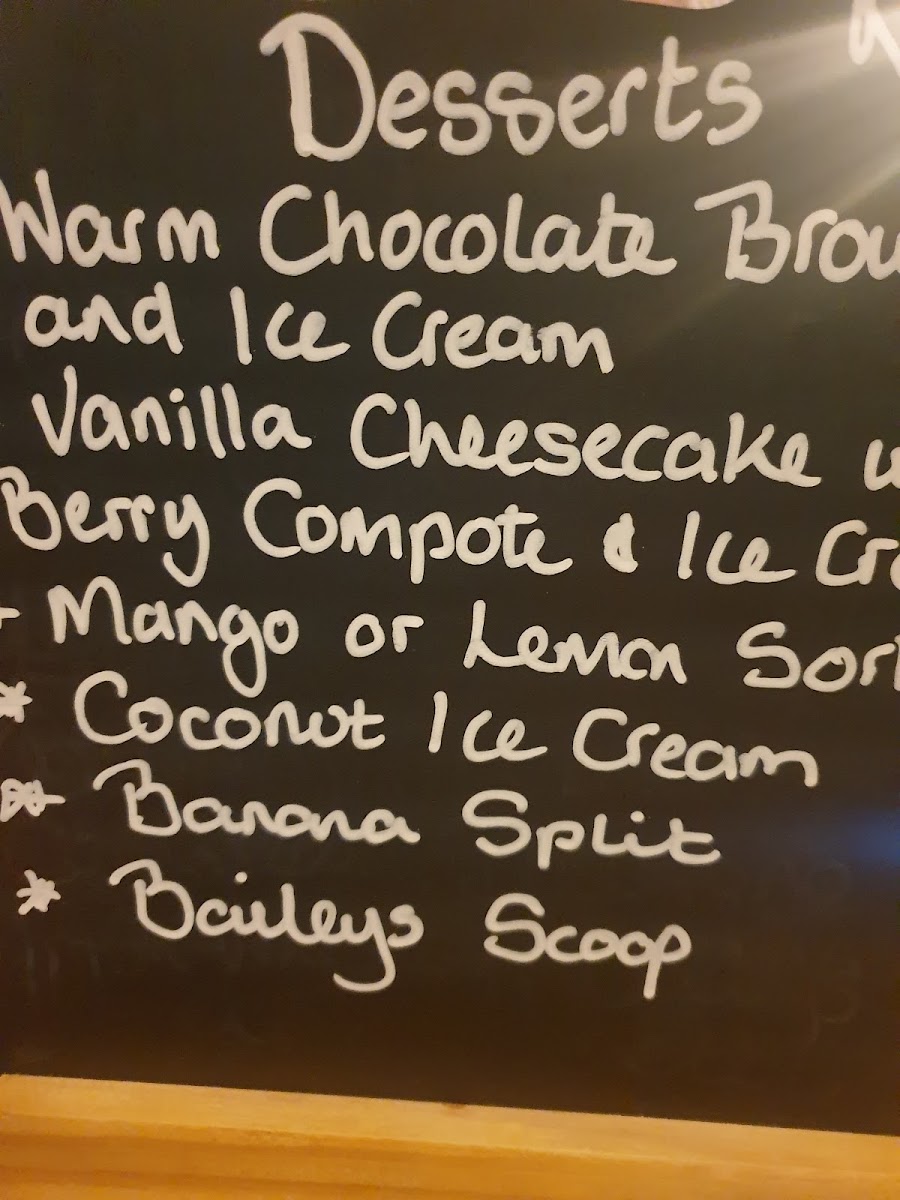 Desserts
Warm Chocolate Brow
and Ice Cream
Vanilla Cheesecake w
Berry Compote & Ice Cre
Mango or Lemon Sorb
* Coconut Ice Cream
* Banana Split
* Baileys Scoop